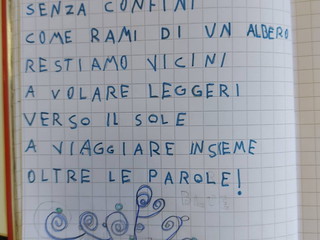 SENZA CONFINI
COME RAMI DI UN ALBERO
RESTIAMO VICINI
A VOLARE LEGGERI
VERSO IL SOLE
A VIAGGIARE INSIEME
OLTRE LE PAROLE!